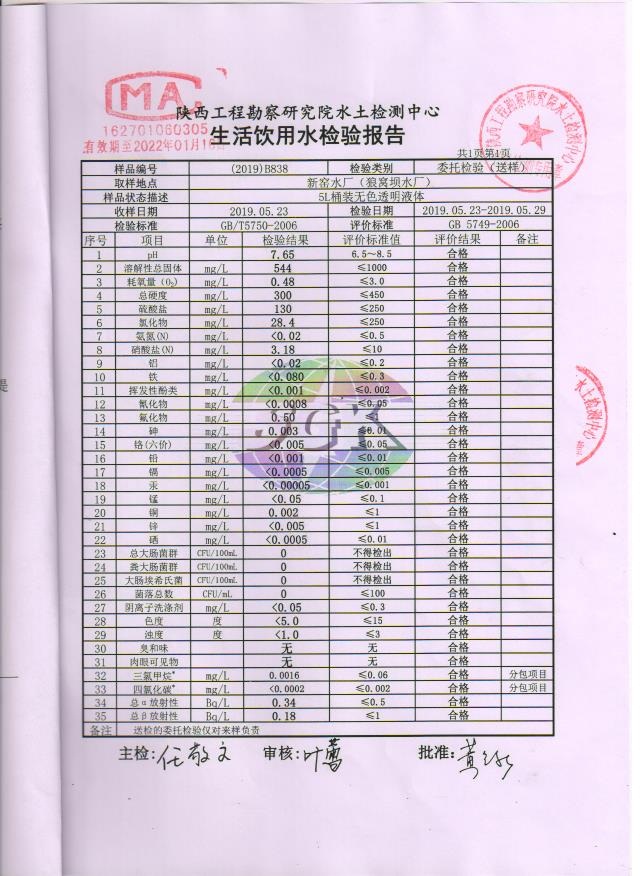 MA
162701060305
有效期至2022年01月1
陕西工程勘察研究院水土检测中心
生活饮用水检验报告
共1页第1页
样品编号 (2019)B838 检验类别 委托检验(送样)
取样地点 新窑水厂(狼窝坝水厂)
样品状态描述 5L桶装无色透明液体
收样日期 2019.05.23 检验日期 2019.05.23-2019.05.29
检验标准 GB/T5750-2006 评价标准 GB 5749-2006
序号 项目 单位 检验结果 评价标准值 评价结果 备注
1 pH 7.65 6.5~8.5 合格
2 溶解性总固体 mg/L 544 ≤1000 合格
3 耗氧量(O₂) mg/L 0.48 ≤3.0 合格
4 总硬度 mg/L 300 ≤450 合格
5 硫酸盐 mg/L 130 ≤250 合格
6 氯化物 mg/L 28.4 ≤250 合格
7 氨氮(N) mg/L <0.02 ≤0.5 合格
8 硝酸盐(N) mg/L 3.18 ≤10 合格
9 铝 mg/L <0.02 ≤0.2 合格
10 铁 mg/L <0.080 ≤0.3 合格
11 挥发性酚类 mg/L <0.001 ≤0.002 合格
12 氰化物 mg/L <0.0008 ≤0.05 合格
13 氟化物 mg/L 0.50 ≤1 合格
14 砷 mg/L 0.003 ≤0.01 合格
15 铬(六价) mg/L <0.005 ≤0.05 合格
16 铅 mg/L <0.001 ≤0.01 合格
17 镉 mg/L <0.0005 ≤0.005 合格
18 汞 mg/L <0.00005 ≤0.001 合格
19 锰 mg/L <0.05 ≤0.1 合格
20 铜 mg/L 0.002 ≤1 合格
21 锌 mg/L <0.005 ≤1 合格
22 硒 mg/L <0.0005 ≤0.01 合格
23 总大肠菌群 CFU/100mL 0 不得检出 合格
24 粪大肠菌群 CFU/100mL 0 不得检出 合格
25 大肠埃希氏菌 CFU/100mL 0 不得检出 合格
26 菌落总数 CFU/mL 0 ≤100 合格
27 阴离子洗涤剂 mg/L <0.05 ≤0.3 合格
28 色度 度 <5.0 ≤15 合格
29 浊度 度 <1.0 ≤3 合格
30 臭和味 无 无 合格
31 肉眼可见物 无 无 合格
32 三氯甲烷* mg/L 0.0016 ≤0.06 合格 分包项目
33 四氯化碳* mg/L <0.0002 ≤0.002 合格 分包项目
34 总α放射性 Bq/L 0.34 ≤0.5 合格
35 总β放射性 Bq/L 0.18 ≤1 合格
备注 送检的委托检验仅对来样负责
主检:任敬文 审核:叶 批准:黄
水土检测中心